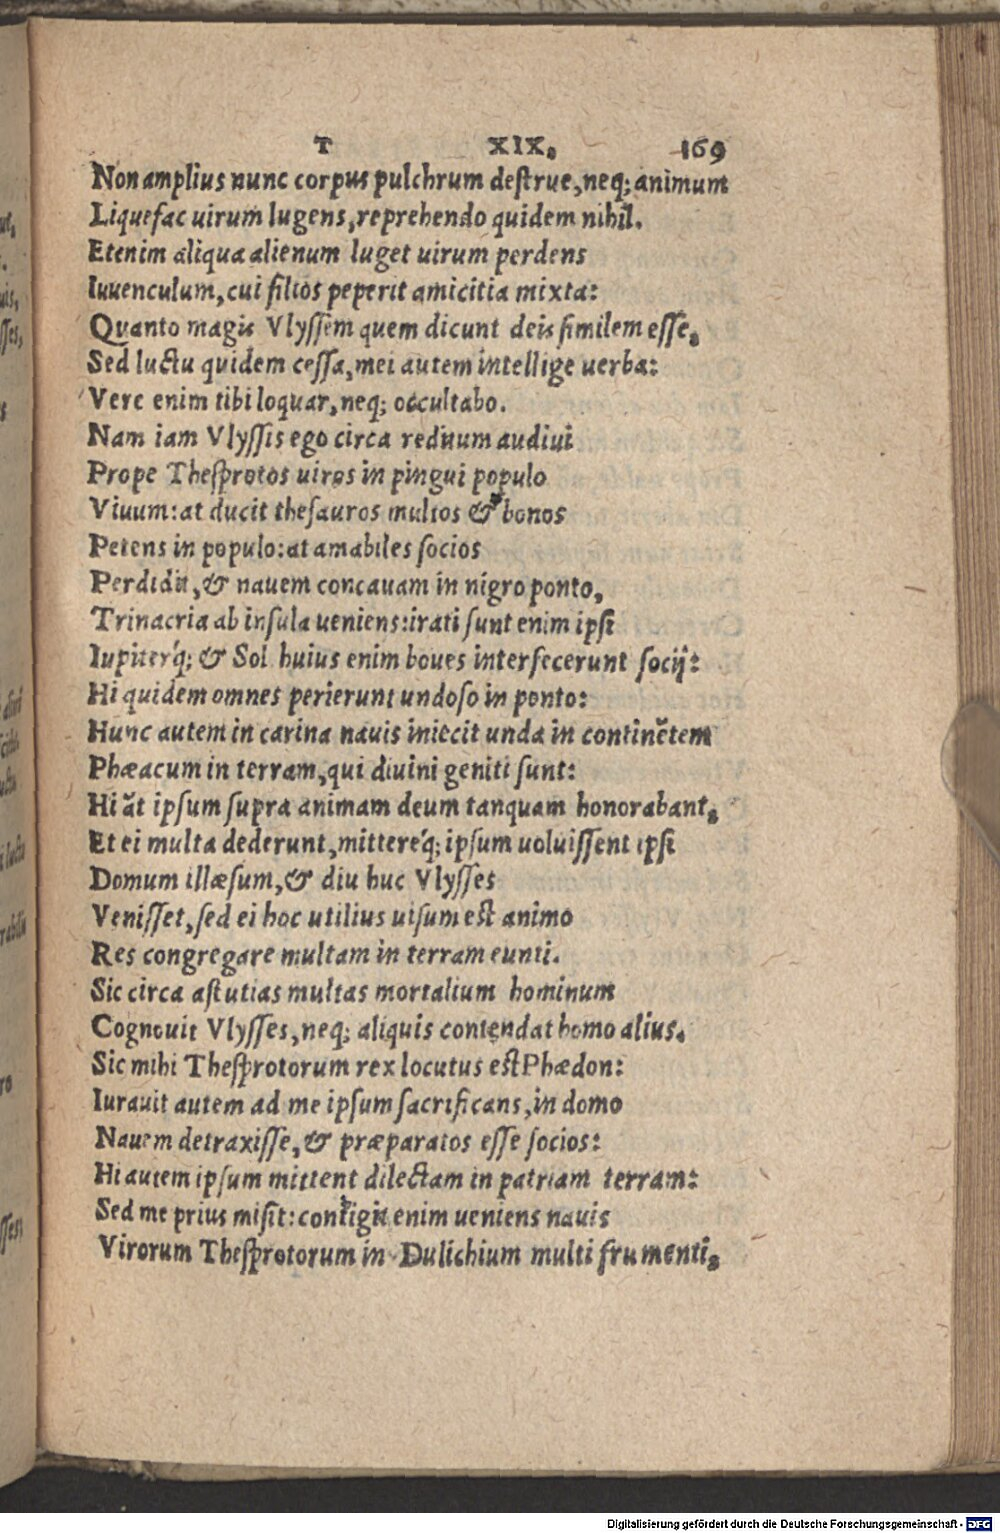 T XIX. 169
Non amplius nunc corpus pulchrum destrue, neq; animum
Liquefac uirum lugens, reprehendo quidem nihil.
Etenim aliqua alienum luget uirum perdens
Iuuenculum, cui filios peperit amicitia mixta:
Quanto magis Vlyssem quem dicunt deis similem esse.
Sed luctu quidem cessa, mei autem intellige uerba:
Vere enim tibi loquar, neq; occultabo.
Nam iam Vlyssis ego circa reditum audiui
Prope Thesprotos uiros in pingui populo
Viuum: at ducit thesauros multos & bonos
Petens in populo: at amabiles socios
Perdidit, & nauem concauam in nigro ponto,
Trinacria ab insula ueniens: irati sunt enim ipsi
Iupiterq́; & Sol huius enim boues interfecerunt socij:
Hi quidem omnes perierunt undoso in ponto:
Hunc autem in carina nauis iniecit unda in continẽtem
Phæacum in terram, qui diuini geniti sunt:
Hi āt ipsum supra animam deum tanquam honorabant.
Et ei multa dederunt, mittereq́; ipsum uoluissent ipsi
Domum illæsum, & diu huc Vlysses
Venisset, sed ei hoc utilius uisum est animo
Res congregare multam in terram eunti.
Sic circa astutias multas mortalium hominum
Cognouit Vlysses, neq; aliquis contendat homo alius.
Sic mihi Thesprotorum rex locutus est Phædon:
Iurauit autem ad me ipsum sacrificans, in domo
Nauem detraxisse, & præparatos esse socios:
Hi autem ipsum mittent dilectam in patriam terram:
Sed me prius misit: contigit enim ueniens nauis
Virorum Thesprotorum in Dulichium multi frumenti.
Digitalisierung gefördert durch die Deutsche Forschungsgemeinschaft - DFG